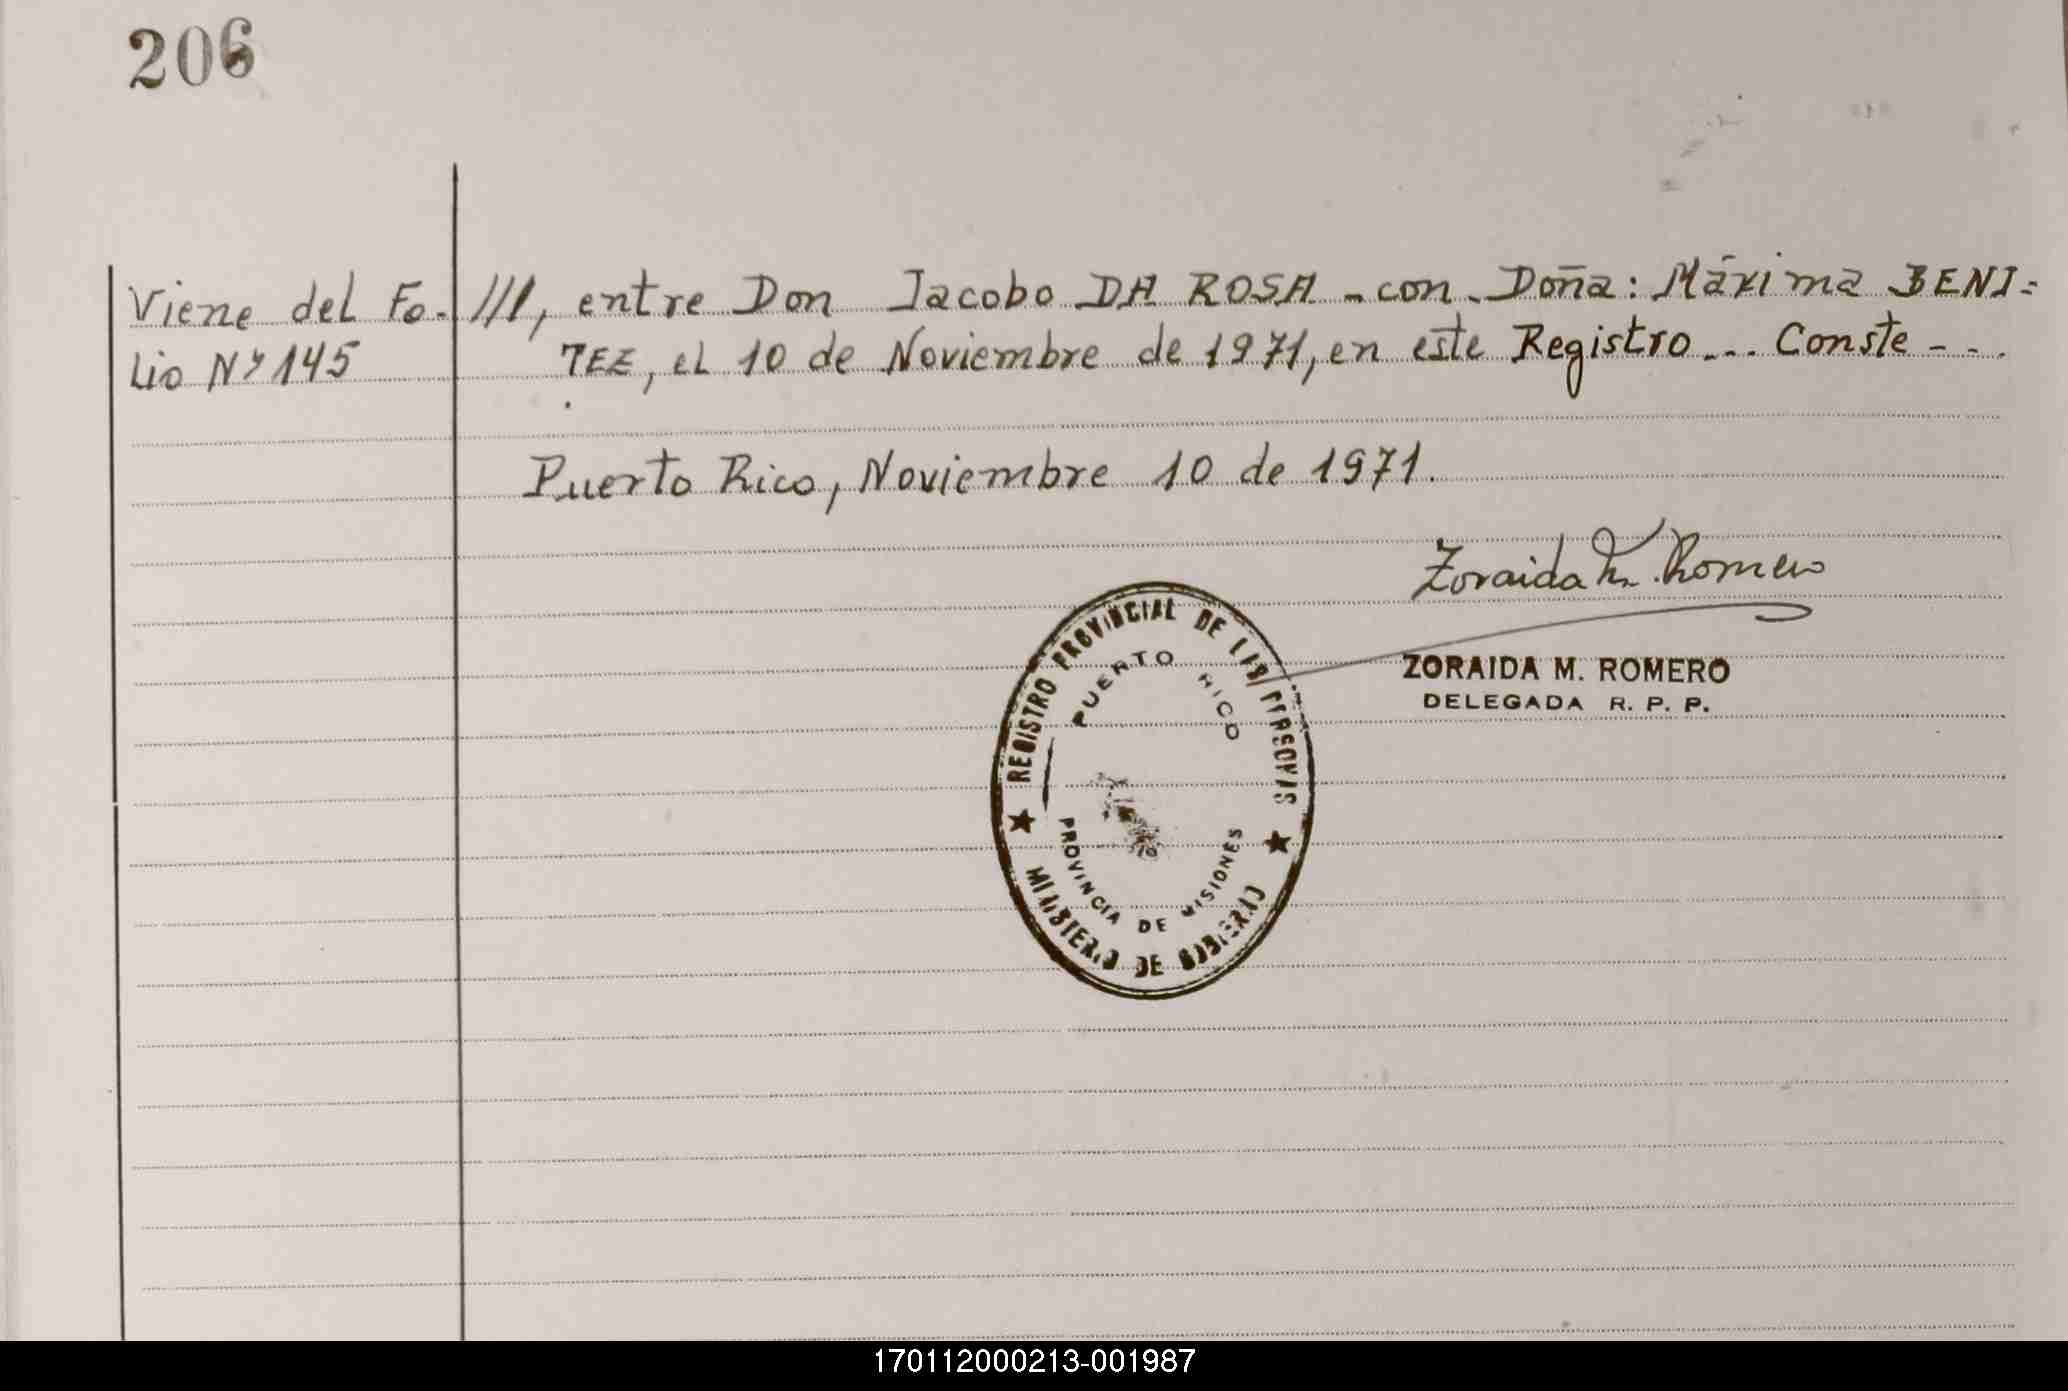 206
Viene del Fo-
lio Nº 145
///, entre Don Jacobo DA ROSA - con - Doña: Máxima BENI=
TEZ, el 10 de Noviembre de 1971, en este Registro... Conste - - .
Puerto Rico, Noviembre 10 de 1971.
Zoraida M. Romero
ZORAIDA M. ROMERO
DELEGADA R. P. P.
REGISTRO PROVINCIAL DE LAS PERSONAS
PUERTO RICO
PROVINCIA DE MISIONES
MINISTERIO DE GOBIERNO
170112000213-001987